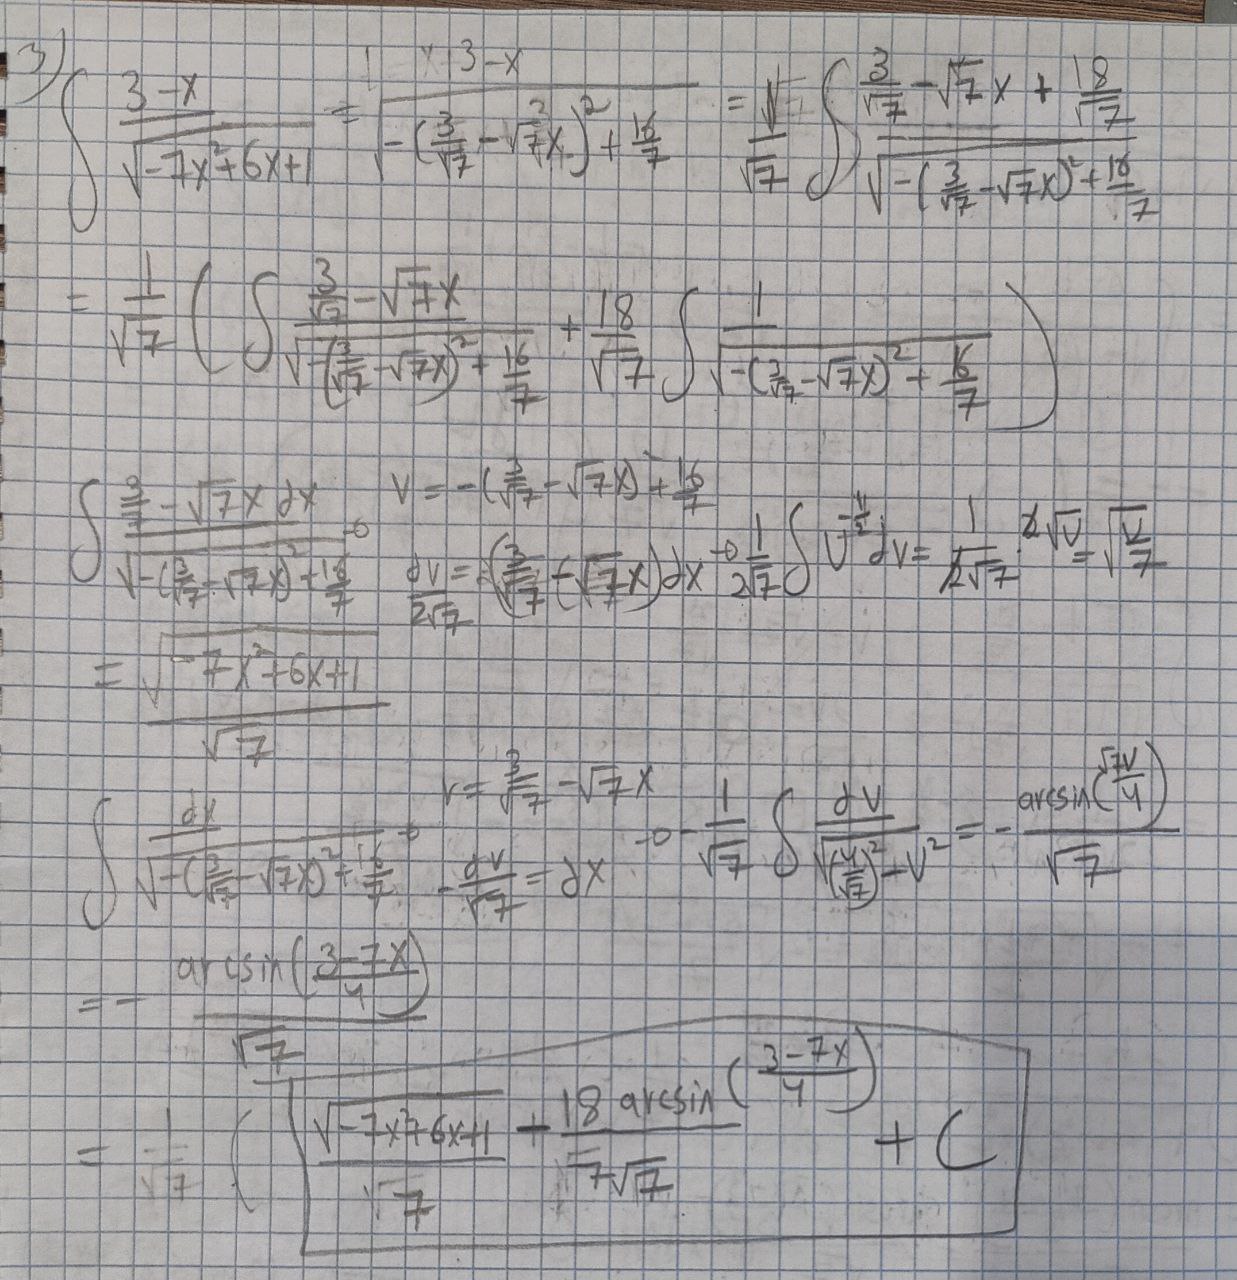 3) ∫ (3-x)/√(-7x²+6x+1) = (x+3-x)/√(-(3/√7 - √7x)² + 16/7) = 1/√7 ∫ (3/√7 - √7x + 18/√7)/√(-(3/√7 - √7x)² + 16/7)
= 1/√7 ( ∫ (3/√7 - √7x)/√(-(3/√7 - √7x)² + 16/7) + 18/√7 ∫ 1/√(-(3/√7 - √7x)² + 16/7) )
∫ (3/√7 - √7x dx)/√(-(3/√7 - √7x)² + 16/7) → v = -(3/√7 - √7x)² + 16/7
dv/2√7 = (3/√7 - √7x)dx → 1/2√7 ∫ v^(-1/2) dv = 1/2√7 · 2√v = √(v/7)
= √(-7x²+6x+1)/√7
∫ dx/√(-(3/√7 - √7x)² + 16/7) → v = 3/√7 - √7x
-dv/√7 = dx → -1/√7 ∫ dv/√((4/√7)² - v²) = - arcsin(√7v/4)/√7
= - arcsin((3-7x)/4)/√7
= 1/√7 ( √(-7x²+6x+1)/√7 + 18 arcsin((3-7x)/4)/√7√7 + C